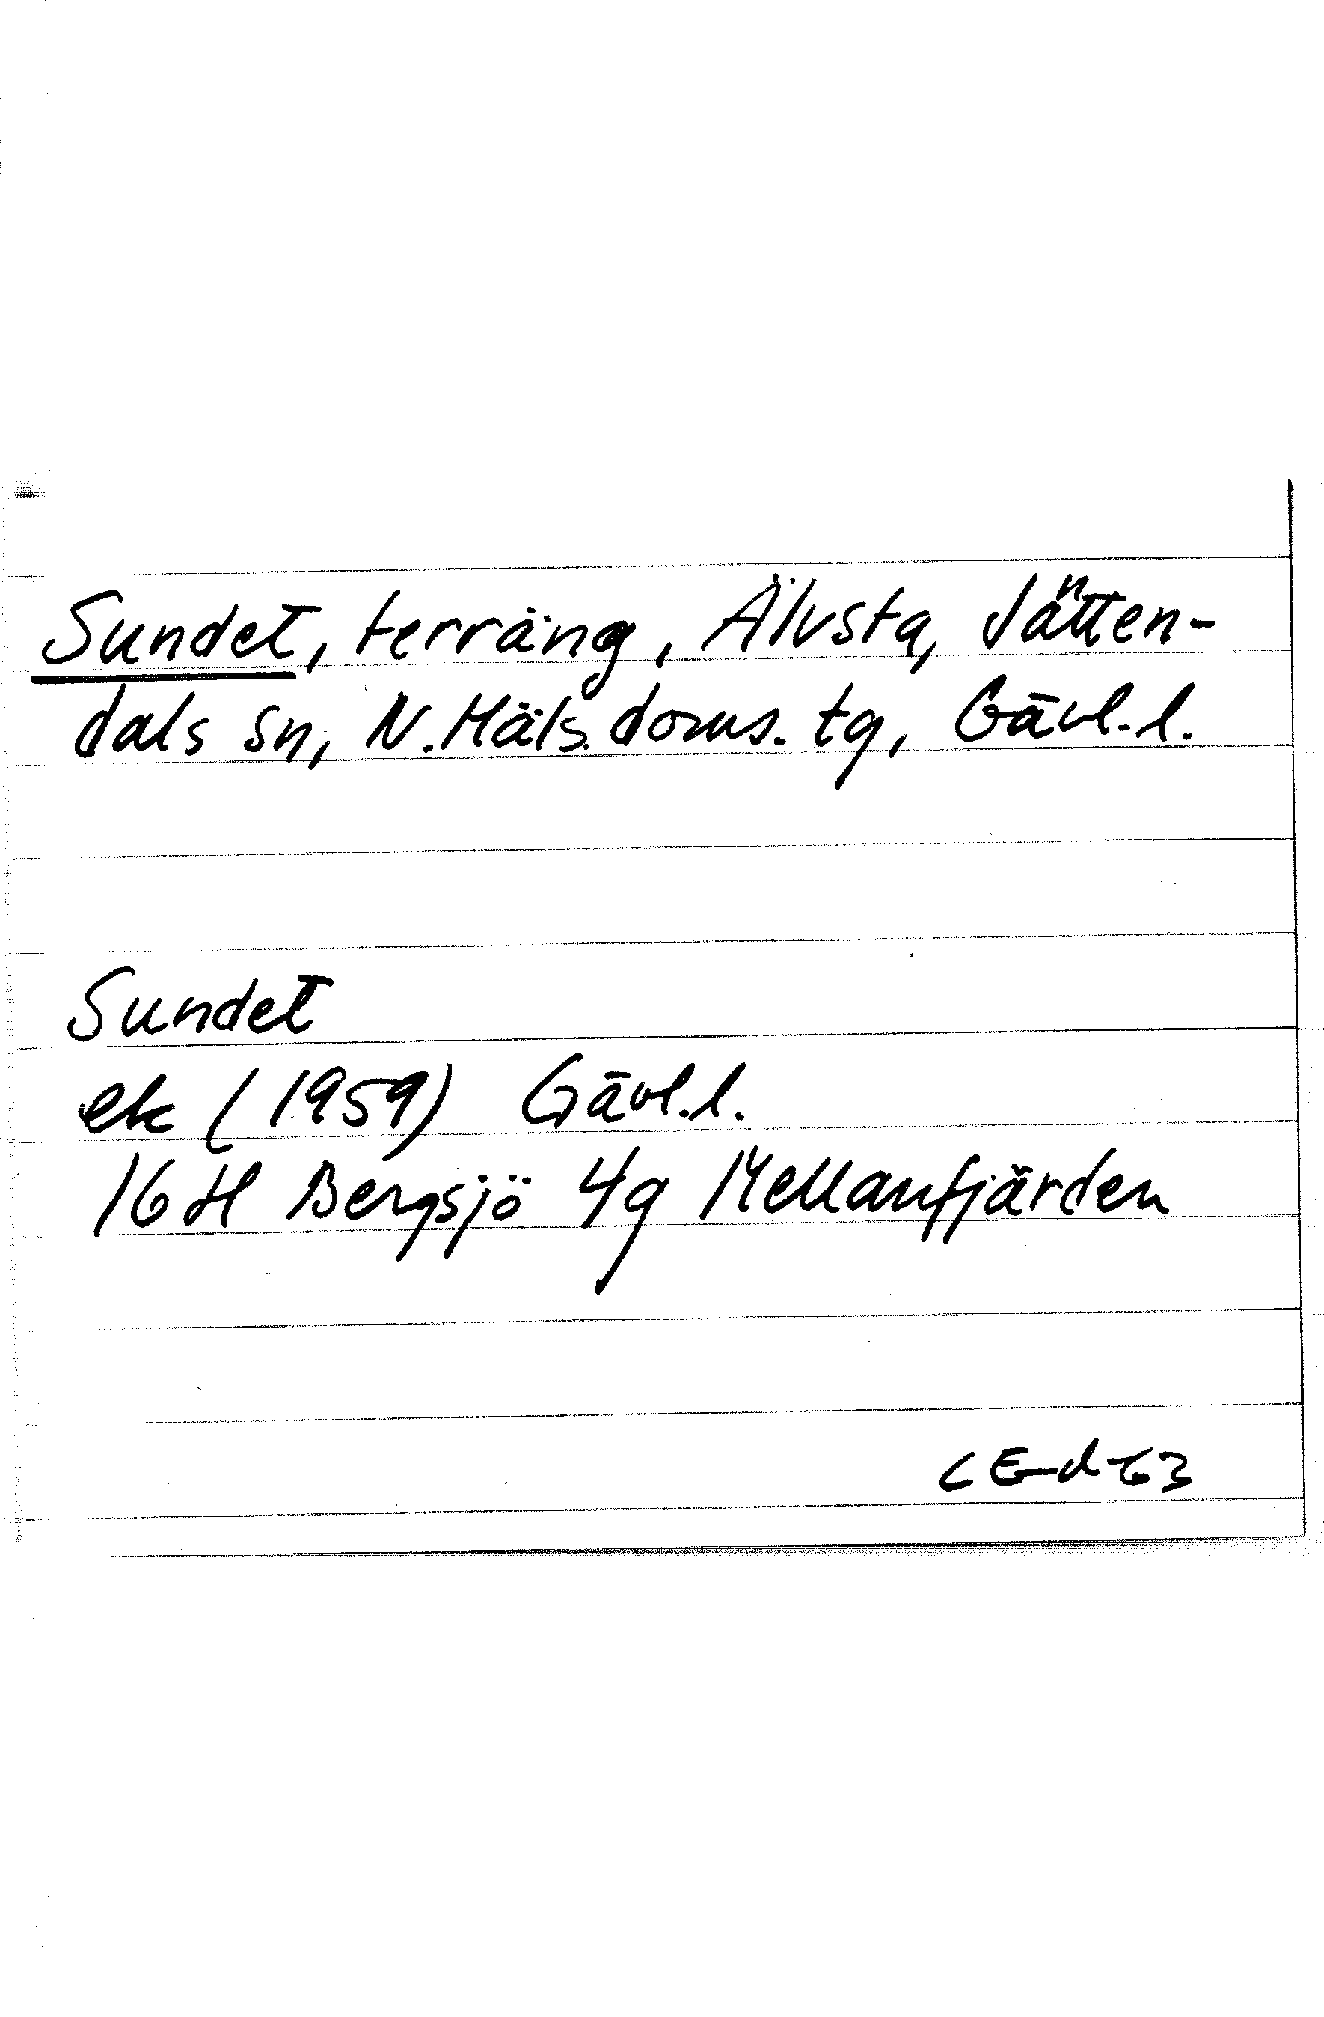 Sundet, terräng, Älvsta, Jätten-
dals sn, N. Häls. doms. tg, Gävl. l.
Sundet
ek (1959) Gävl. l.
16 H Bergsjö 4g Mellanfjärden